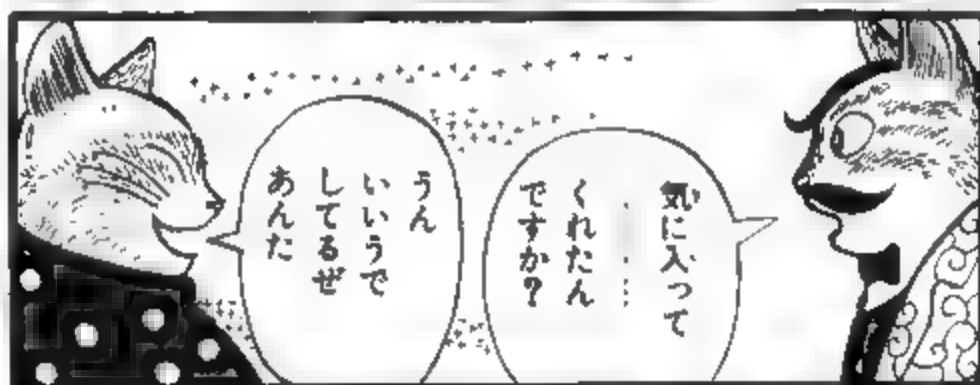 気に入って
……
くれたん
ですか?
うん
いいうで
してるぜ
あんた